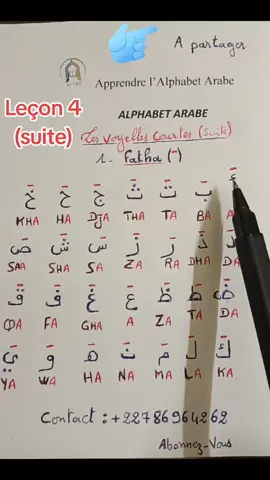 A partager
Apprendre l'Alphabet Arabe
Leçon 4
(suite)
ALPHABET ARABE
Les voyelles courtes (suite)
1- Fatha (َ-)
خَ حَ جَ ثَ تَ بَ أَ
KHA HA DJA THA TA BA A
صَ شَ سَ زَ رَ ذَ دَ
SAA SHA SA ZA RA DHA DA
قَ فَ غَ عَ ظَ طَ ضَ
QA FA GHA A ZA TA DA
يَ وَ هَ نَ مَ لَ كَ
YA WA HA NA MA LA KA
Contact : +22786964262
Abonnez-Vous